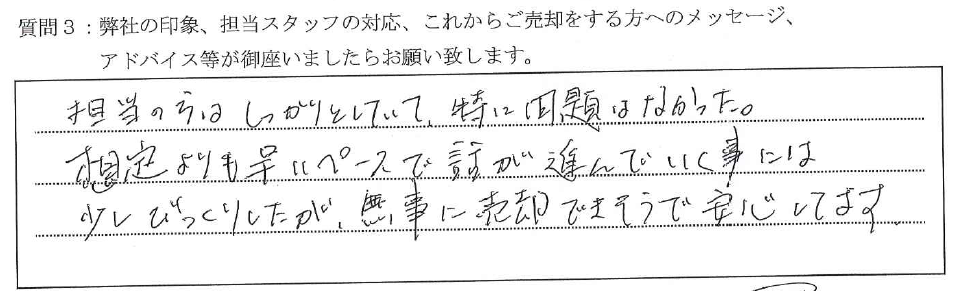 質問3：弊社の印象、担当スタッフの対応、これからご売却をする方へのメッセージ、
アドバイス等が御座いましたらお願い致します。
担当の方はしっかりとしていて、特に問題はなかった。
想定よりも早いペースで話が進んでいく事には
少しびっくりしたが、無事に売却できそうで安心してます。